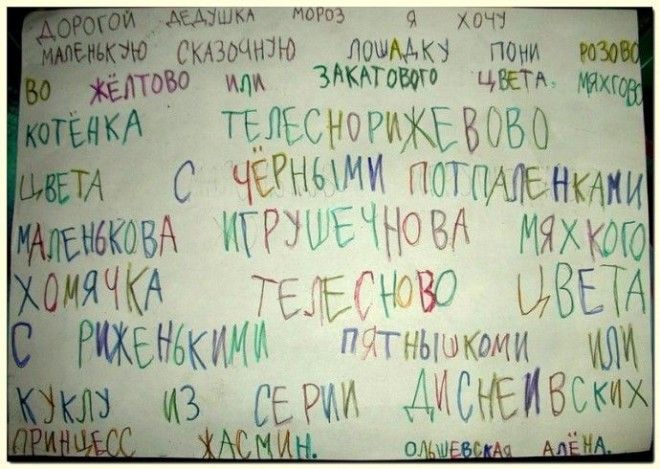 ДОРОГОЙ ДЕДУШКА МОРОЗ Я ХОЧУ
МАЛЕНЬКУЮ СКАЗОЧНУЮ ЛОШАДКУ ПОНИ РОЗОВО
ВО ЖЁЛТОВО ИЛИ ЗАКАТОВОГО ЦВЕТА. МЯХГОВО
КОТЁНКА ТЕЛЕСНОРИЖЕВОВО
ЦВЕТА С ЧЁРНЫМИ ПОТПАЛЕНКАМИ
МАЛЕНЬКОВА ИГРУШЕЧНОВА МЯХКОГО
ХОМЯЧКА ТЕЛЕСНОВО ЦВЕТА
С РИЖЕНЬКИМИ ПЯТНЫШКОМИ ИЛИ
КУКЛУ ИЗ СЕРИИ ДИСНЕИВСКИХ
ПРИНЦЕСС ЖАСМИН. ОЛЬШЕВСКАЯ АЛЁНА.